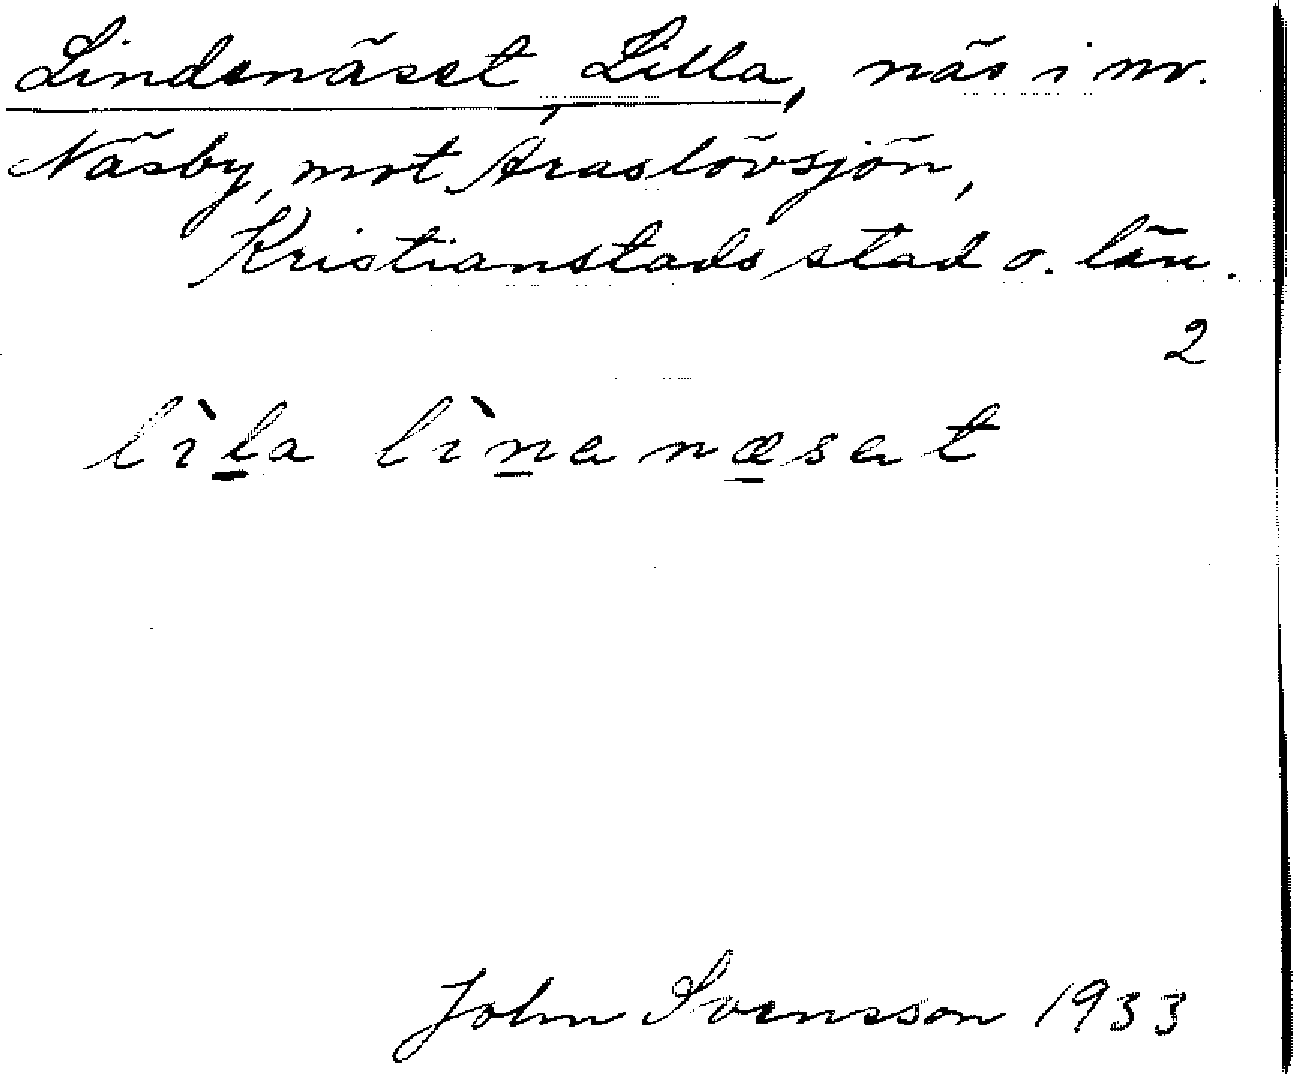 Lindenäset, Lilla, näs i nv.
Näsby, mot Araslövsjön,
Kristianstads stad o. län.
2
lìl̲a lìn̲anæ̲sat
John Svensson 1933